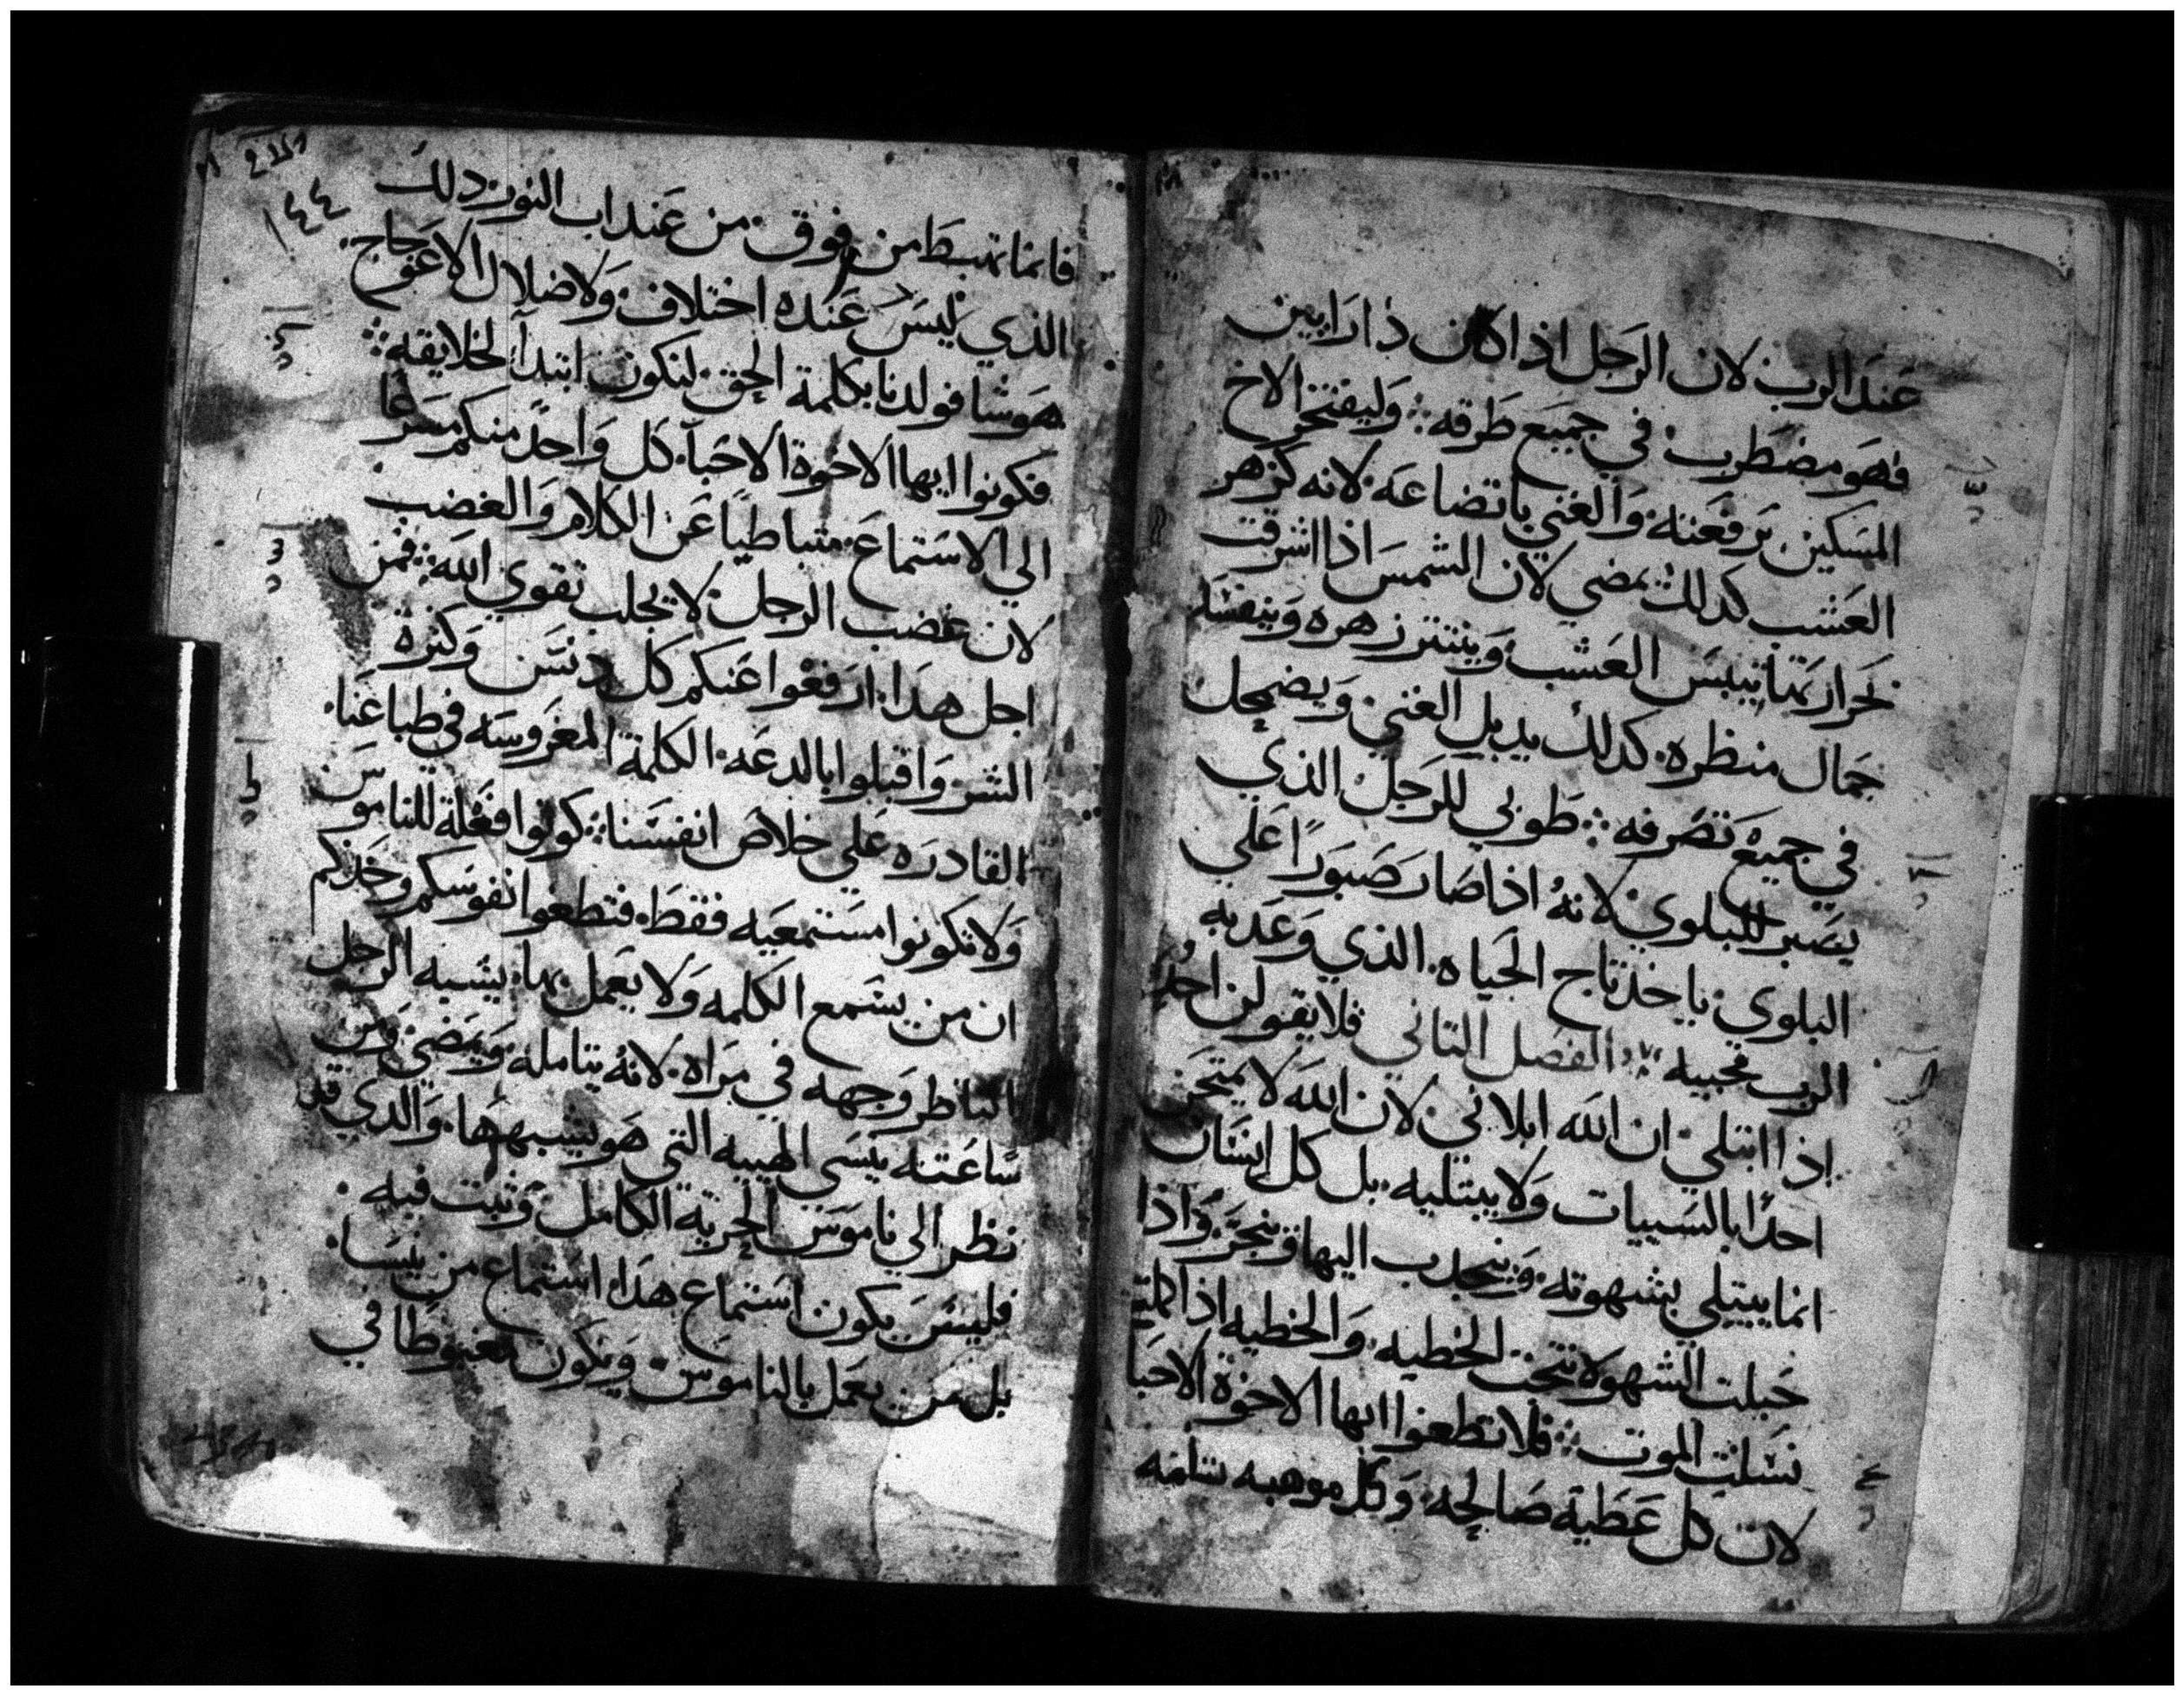 عند الرب لان الرجل اذا كان ذا رايين
فهو مضطرب في جميع طرقه ؛ وليفتخر الاخ
المسكين برفعته والغني باتضاعه لانه كزهر
العشب كدلك يمضي لان الشمس اذا اشرقت
بحرارتها يبس العشب وينتتر زهره ويفسد
جمال منظره كدلك يدبل الغني ويضمحل
في جميع تصرفه ؛ طوبي للرجل الذي
يصبر للبلوي لانه اذا صار صبورا علي
البلوي ياخد تاج الحياه الذي وعد به
الرب محبيه ؛ الفصل التاني فلا يقولن احد
اذا ابتلي ان الله ابلاني لان الله لا يمتحن
احدا بالسييات ولا يبتليه بل كل انسان
انما يبتلي بشهوته وينجدب اليها وينجر واذا
حبلت الشهوه نتجت الخطيه والخطيه اذا كملت
نسلت الموت ؛ فلا تطغوا ايها الاخوة الاحبا
لان كل عطية صالحه وكل موهبه تامه
١٤٤
فانما تهبط من فوق من عند اب النور دلك
الذي ليس عنده اختلاف ولا ضلال الاعوجاج
هو شا فولدنا بكلمة الحق لنكون ابتدآ لخلايقه ؛
فكونوا ايها الاخوة الاحبآ كل واحد منكم مسرعا
الي الاستماع متباطيا عن الكلام والغضب
لان غضب الرجل لا يجلب تقوي الله ؛ فمن
اجل هدا ارفعوا عنكم كل دنس وكثرة
الشر واقبلوا بالدعه الكلمة المغروسه في طباعنا
القادره علي خلاص انفسنا ؛ كونوا فعلة للناموس
ولا تكونوا مستمعيه فقط فتطغوا نفوسكم وحدكم
ان من يسمع الكلمه ولا يعمل بها يشبه الرجل
الناظر وجهه في مراه لانه يتامله ويمضي ومن
ساعته ينسي الهييه التي هو يشبهها والدي قد
نظر الي ناموس الحرية الكامل وثبت فيه
فليس يكون استماع هدا استماع من ينسا
بل من يعمل بالناموس ويكون مغبوطا في